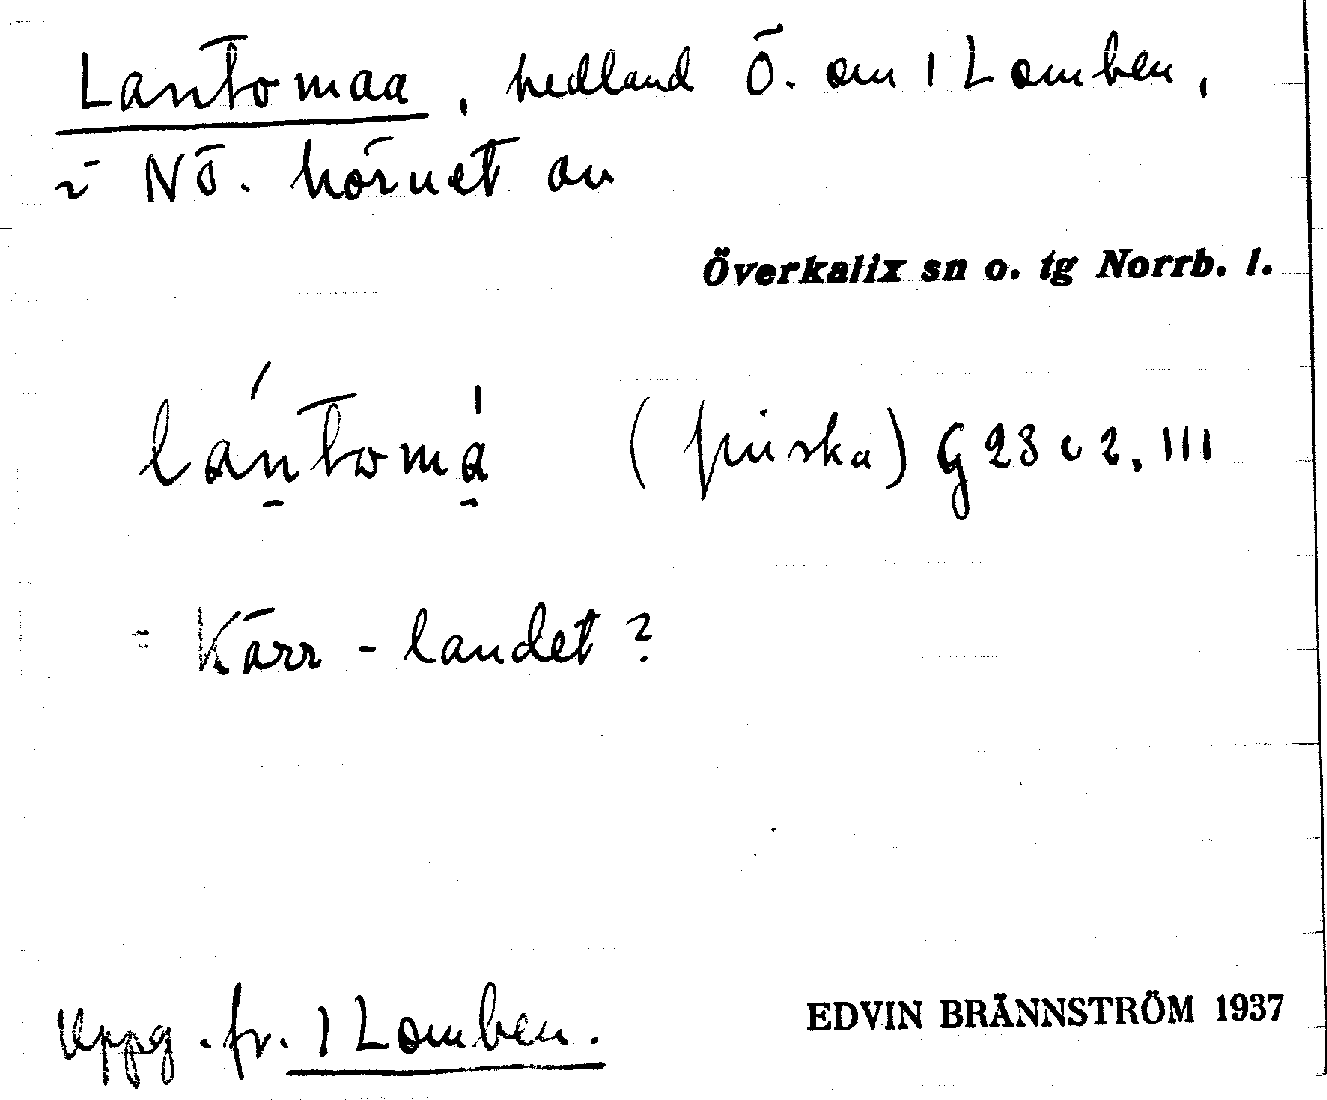 Lantomaa, hedland Ö. om 1 Lomben,
i NÖ. hörnet av
Överkalix sn o. tg Norrb. l.
lántomá̩ (finska) G 23 c 2, III
= Kärr-landet?
Uppg. fr. 1 Lomben.
EDVIN BRÄNNSTRÖM 1937